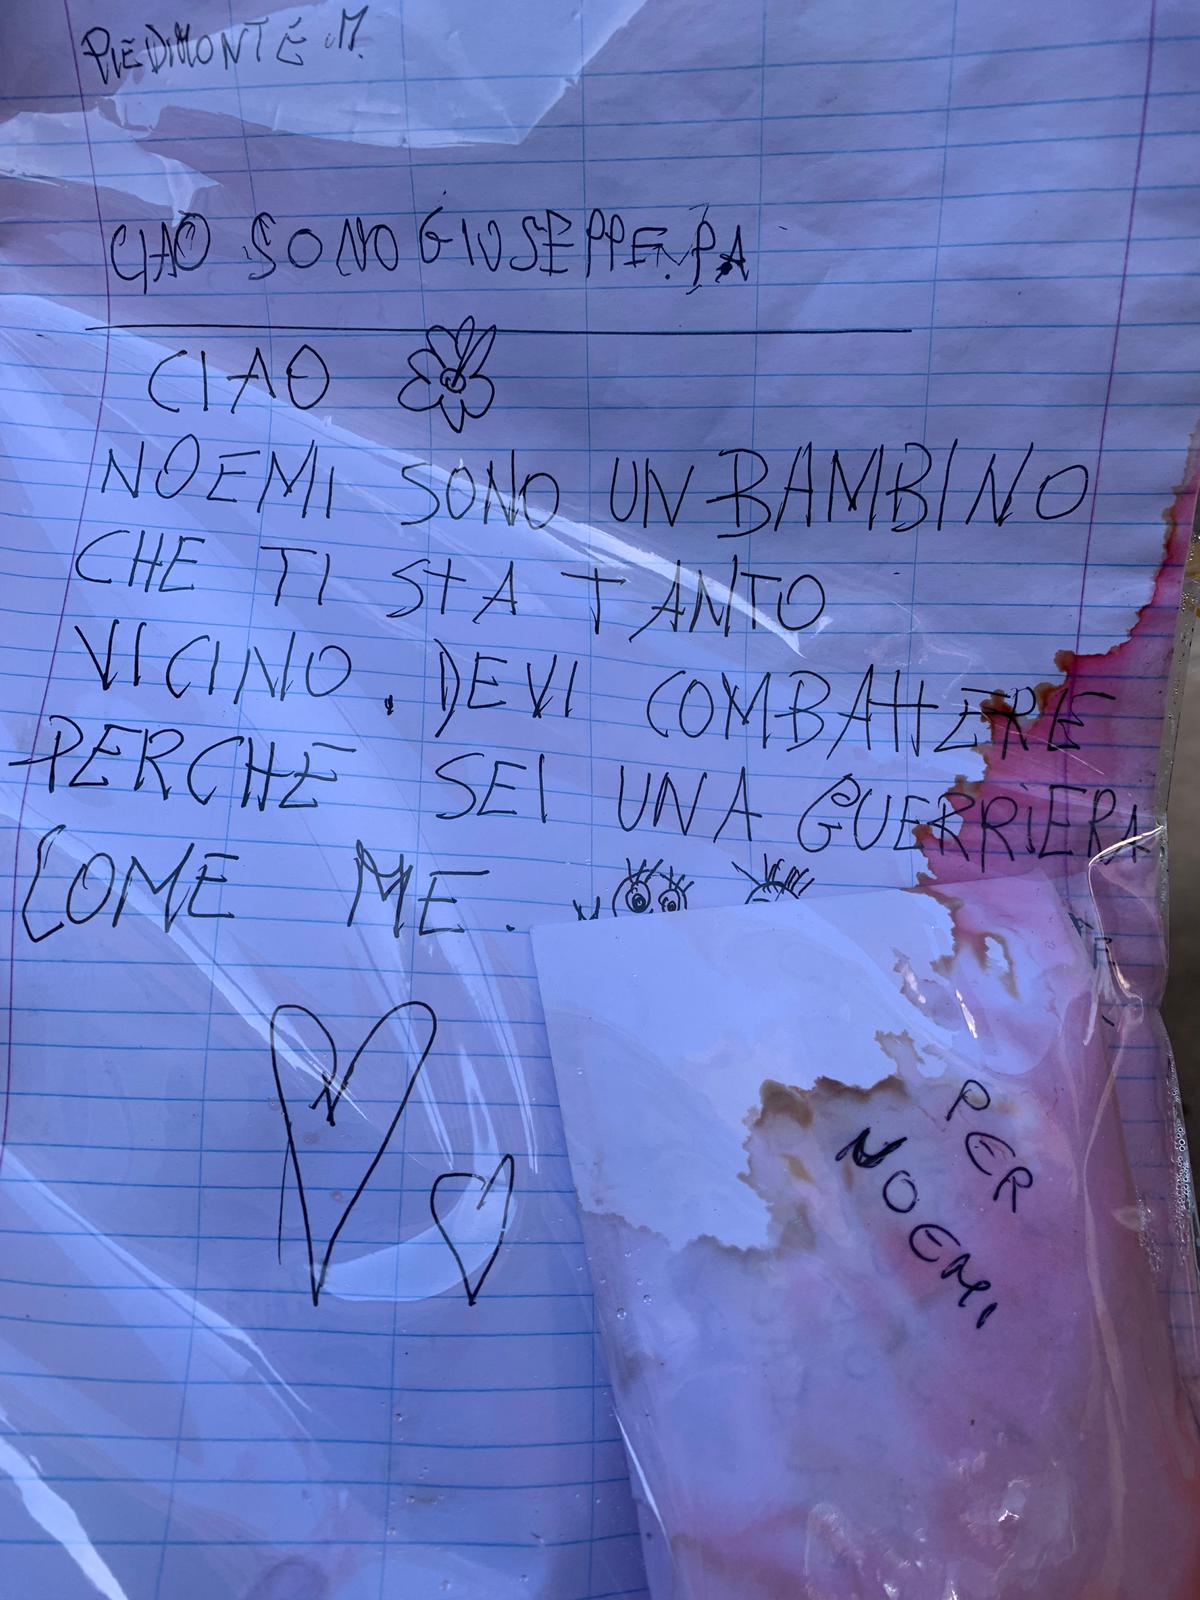 PIEDIMONTE M.
CIAO SONO GIUSEPPE
CIAO
NOEMI SONO UN BAMBINO
CHE TI STA TANTO
VICINO. DEVI COMBATTERE
PERCHE SEI UNA GUERRIERA
COME ME.
N
PER
NOEMI